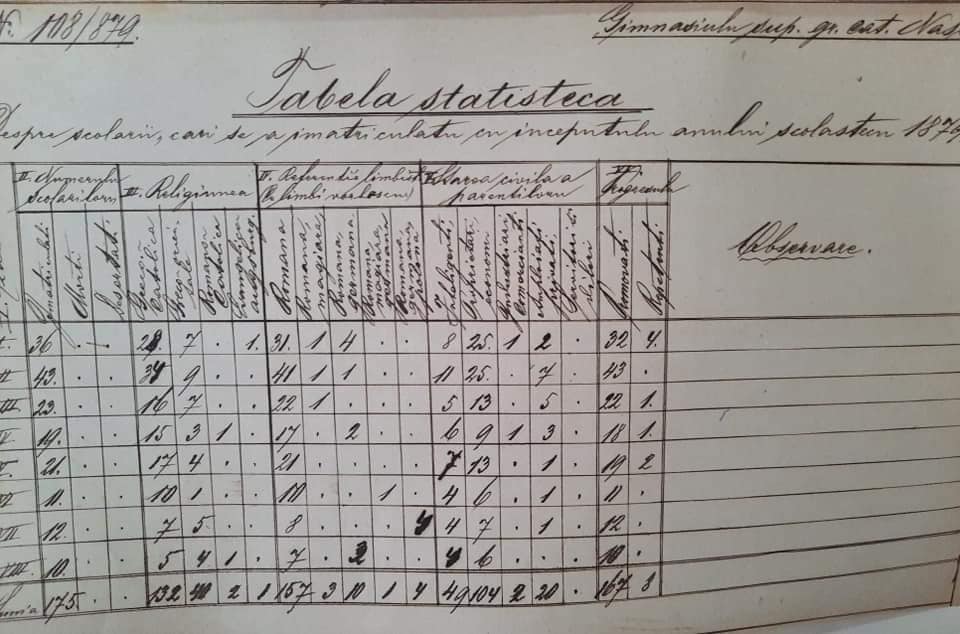 Nr. 108/879.
Gimnasiulu sup. gr. cat. Nas
Tabela statisteca
Despre scolarii, cari se a imatriculatu cu inceputulu anului scolasticu 1879
II. Numerulu scolariloru III. Religiunea IV. Referentiele limbistice (limbi vorbescu) V. Starea civila a parentiloru VI. Progresulu
Imatriculati Morti Desertati Greco-Catolica Greco-orientale Romano Catolica Evangelica Romana Romana, magiara Romana germana Romana magiara, germana Romana, Germana Inteligenti Proprietari, economi Industriari, Comercianti Amploiati privati Removati Repetenti Observare.
I. 36 . . 28 7 . 1. 31. 1 4 . . 8 25. 1 2 . 32 4.
II 43. . . 34 9 . . 41 1 1 . . 11 25. . 7 . 43 .
III 23. . . 16 7 . . 22 1 . . . 5 13 . 5 . 22 1.
IV. 19. . . 15 3 1 . 17 . 2 . . 6 9 1 3 . 18 1.
V. 21. . . 17 4 . . 21 . . . . 7 13 . 1 . 19 2
VI 11. . . 10 1 . . 10 . . 1 . 4 6 . 1 . 11 .
VII 12. . . 7 5 . . 8 . . . 4 4 7 . 1 . 12 .
VIII. 10. . . 5 4 1 . 7 . 3 . . 4 6 . . . 10 .
Suma 175. . . 132 40 2 1 157 3 10 1 4 49 104 2 20 . 167 8